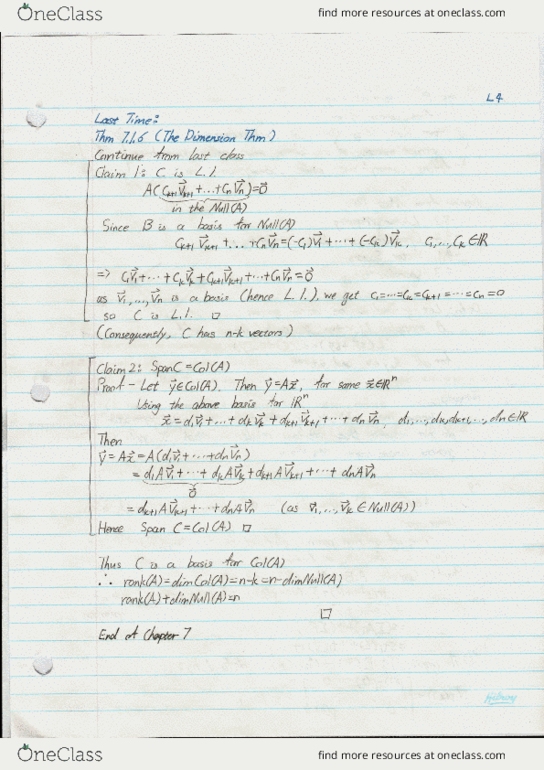 OneClass
find more resources at oneclass.com
L4
Last Time:
Thm 7.1.6 (The Dimension Thm)
Continue from last class
Claim 1: C is L.I.
A(Cₖ₊₁V⃗ₖ₊₁+...+CₙV⃗ₙ)=0⃗
in the Null(A)
Since B is a basis for Null(A)
Cₖ₊₁V⃗ₖ₊₁+...+CₙV⃗ₙ=(-C₁)V⃗₁+...+(-Cₖ)V⃗ₖ, C₁,...,Cₖ∈ℝ
=> C₁V⃗₁+...+CₖV⃗ₖ+Cₖ₊₁V⃗ₖ₊₁+...+CₙV⃗ₙ=0⃗
as V⃗₁,...,V⃗ₙ is a basis (hence L.I.), we get C₁=...=Cₖ=Cₖ₊₁=...=Cₙ=0
so C is L.I. □
(Consequently, C has n-k vectors)
Claim 2: Span C=Col(A)
Proof - Let y⃗∈Col(A). Then y⃗=Ax⃗, for some x⃗∈ℝⁿ
Using the above basis for ℝⁿ
x⃗=d₁V⃗₁+...+dₖV⃗ₖ+dₖ₊₁V⃗ₖ₊₁+...+dₙV⃗ₙ, d₁,...,dₖ,dₖ₊₁,...,dₙ∈ℝ
Then
y⃗=Ax⃗=A(d₁V⃗₁+...+dₙV⃗ₙ)
=d₁AV⃗₁+...+dₖAV⃗ₖ+dₖ₊₁AV⃗ₖ₊₁+...+dₙAV⃗ₙ
0⃗
=dₖ₊₁AV⃗ₖ₊₁+...+dₙAV⃗ₙ (as V⃗₁,...,V⃗ₖ∈Null(A))
Hence Span C=Col(A) □
Thus C is a basis for Col(A)
∴ rank(A)=dimCol(A)=n-k=n-dimNull(A)
rank(A)+dimNull(A)=n
□
End of Chapter 7
OneClass
find more resources at oneclass.com